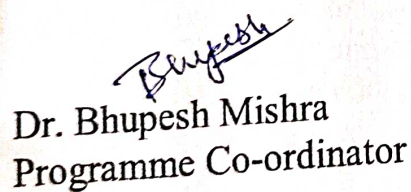 Bhupesh
Dr. Bhupesh Mishra
Programme Co-ordinator